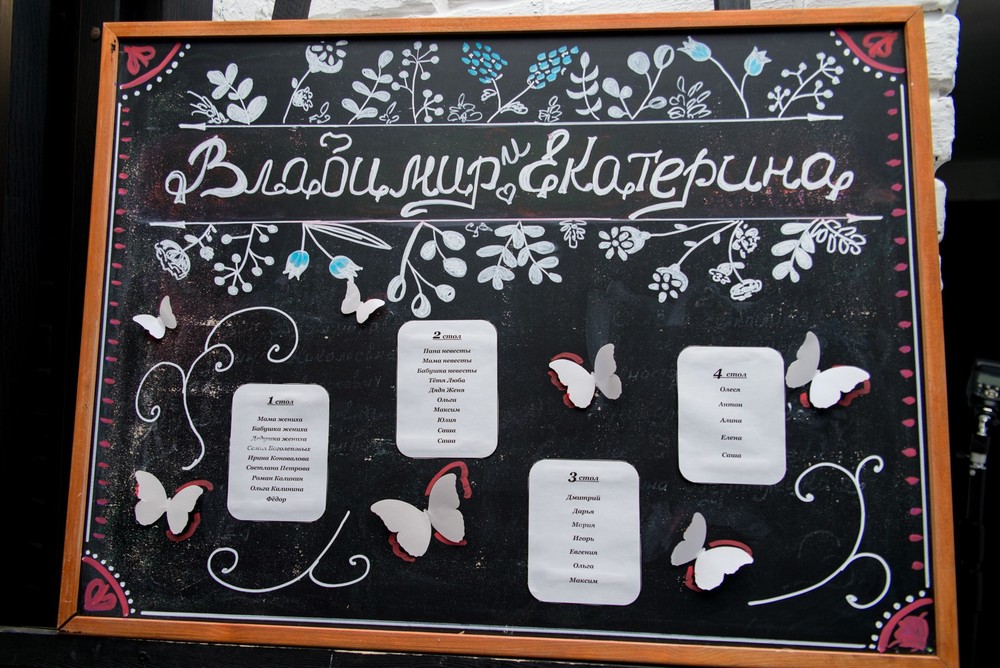 Владимир и Екатерина
1 стол
Мама жениха
Бабушка жениха
Дедушка жениха
Семья Боголеповых
Ирина Коновалова
Светлана Петрова
Роман Калинин
Ольга Калинина
Фёдор
2 стол
Папа невесты
Мама невесты
Бабушка невесты
Тётя Люба
Дядя Женя
Ольга
Максим
Юлия
Саша
Саша
3 стол
Дмитрий
Дарья
Мария
Игорь
Евгения
Ольга
Максим
4 стол
Олеся
Антон
Алина
Елена
Саша